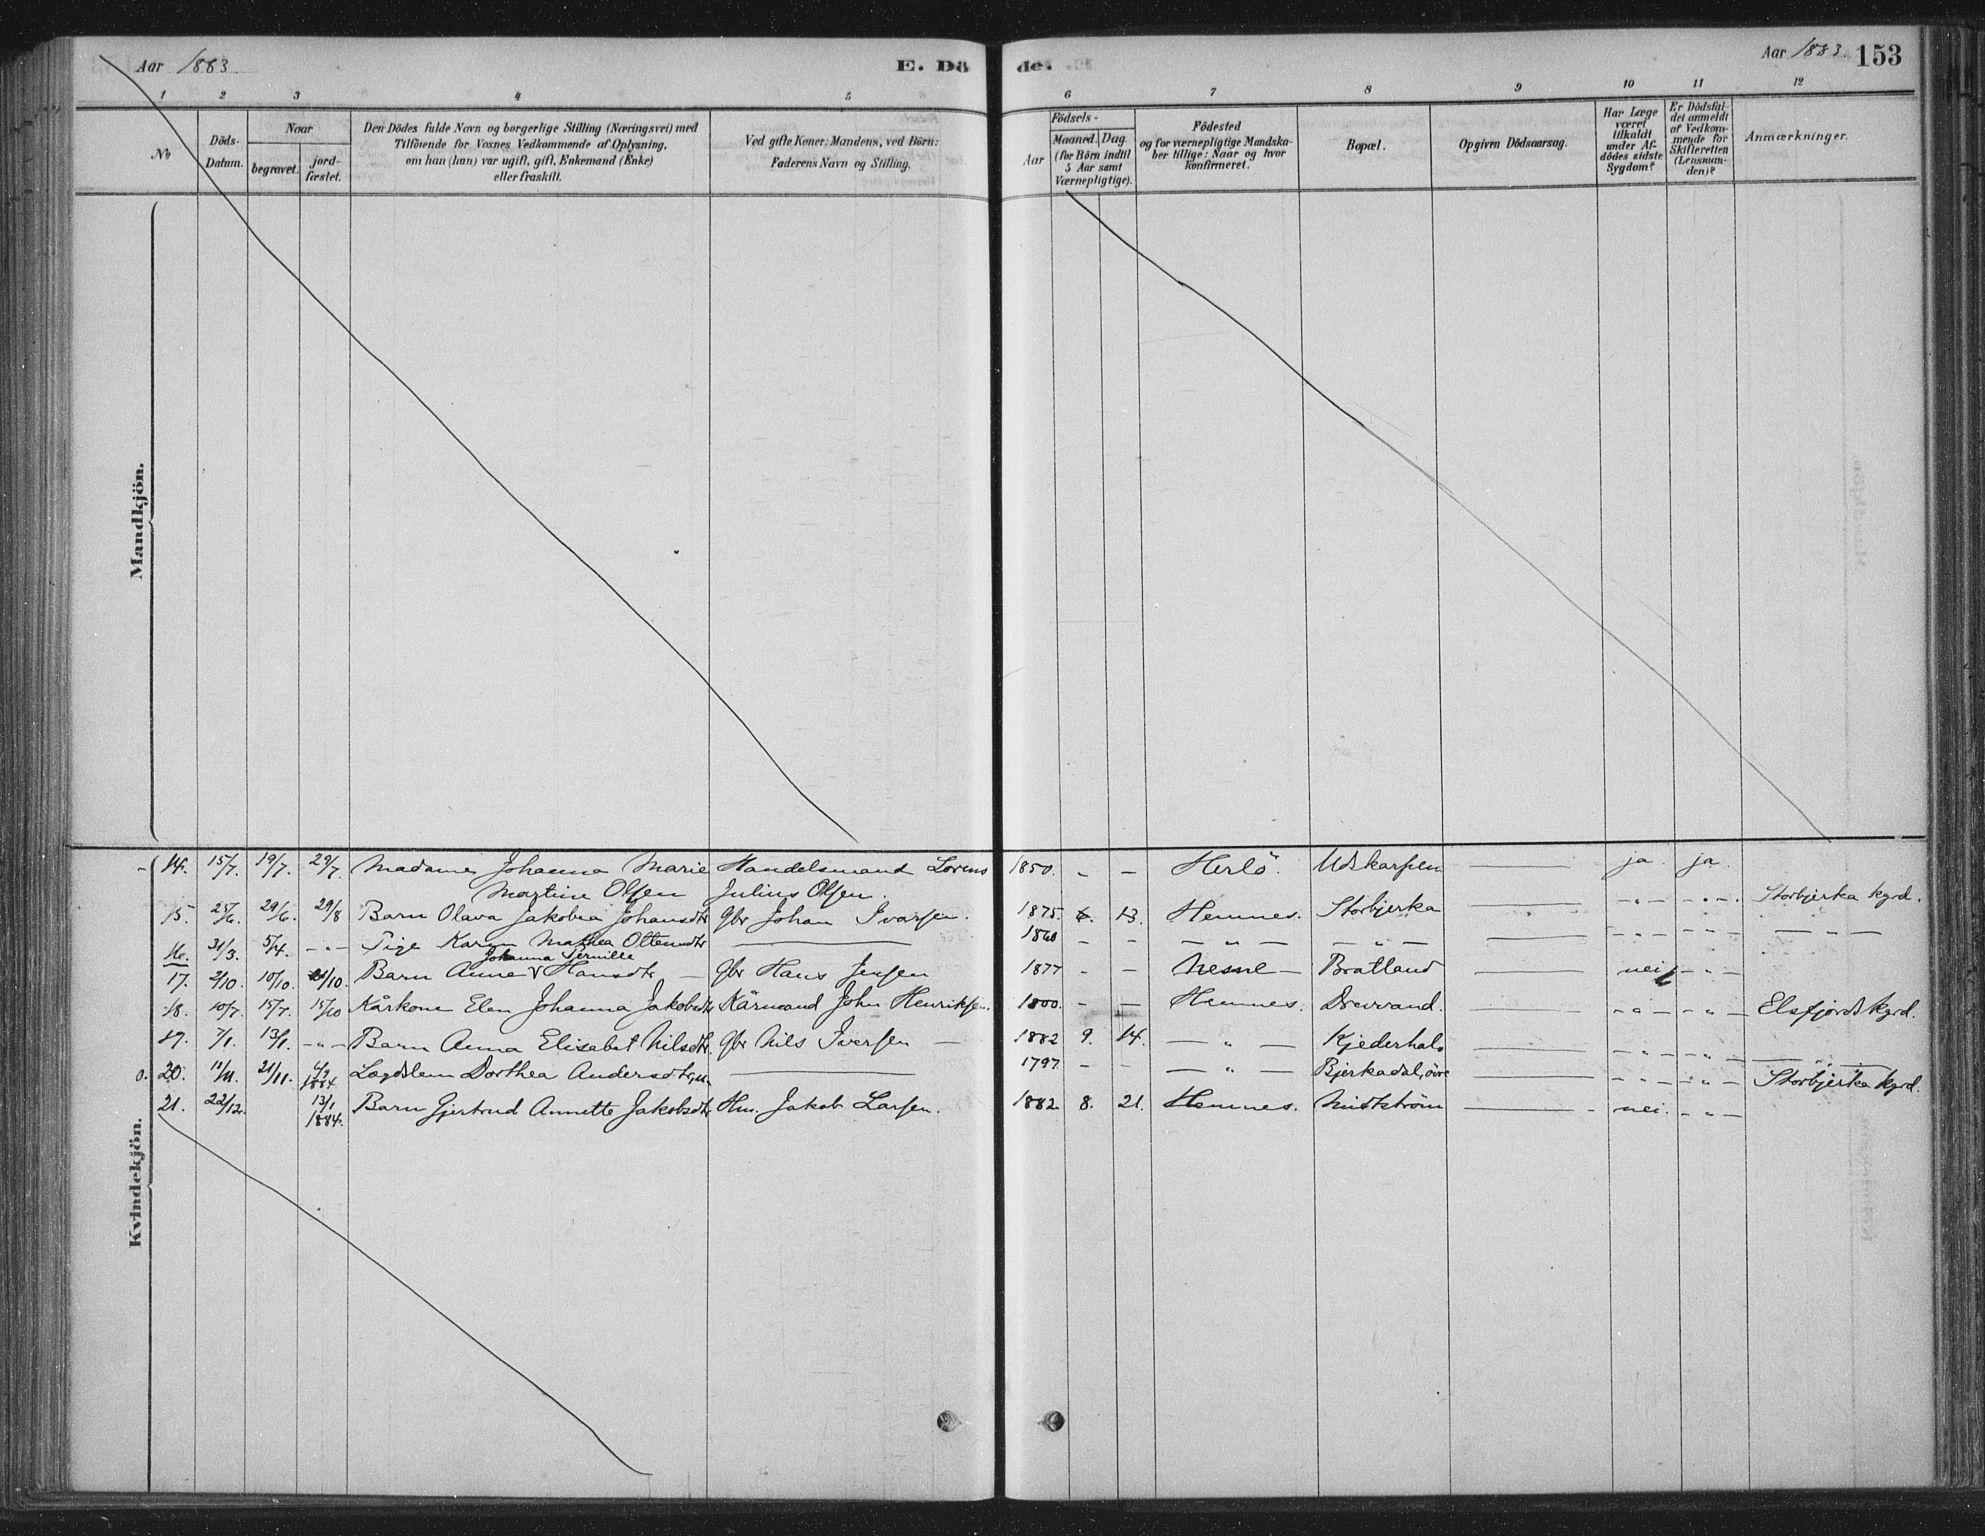 Aar 1883. E. Dö de. Aar 1883. 153
1 2 3 4 5 6 7 8 9 10 11 12
№
Döds-
Datum.
Naar
begravet.
jord-
fæstet.
Den Dödes fulde Navn og borgerlige Stilling (Næringsvei) med
Tilföiende for Voxnes Vedkommende af Oplysning,
om han (hun) var ugift, gift, Enkemand (Enke)
eller fraskilt.
Ved gifte Koner: Mandens, ved Börn:
Faderens Navn og Stilling.
Födsels-
Aar
Maaned.
Dag.
(for Börn indtil
5 Aar samt
Værnepligtige).
Födested
og for værnepligtige Mandska-
ber tillige: Naar og hvor
konfirmeret.
Bopæl.
Opgiven Dödsaarsag.
Har Læge
været
tilkaldt
under Af-
dödes sidste
Sygdom?
Er Dödsfal-
det anmeldt
af Vedkom-
mende for
Skifteretten
(Lensman-
den)?
Anmærkninger.
Mandkjön.
Kvindekjön.
14. 15/7. 19/7. 29/7. Madame Johanna Marie Handelsmand Lorens 1850. – – Herlö. Udskarpen — ja. ja.
Martine Olsen Julius Olsen.
15. 25/6. 29/6. 29/8 Barn Olava Jakobea Johansdtr Gbr Johan Ivarsen. 1875. 6. 13. Hemnes. Storbjerka — – " – – " – Storbjerka kgrd.
16. 31/3. 5/4. – " – Pige Karen Mathea Ottensdtr — 1860 – – – " – – " – — – " – – " – – " –
Johanna Pernille
17. 2/10. 10/10. 21/10. Barn Anne V Hansdtr – Gbr Hans Jensen 1877 – – Nesne – Bratland — nei – " –
18. 10/7. 15/7. 15/10 Kårkone Elen Johanna Jakobsdtr Kårmand John Henriksen. 1800. – – Hemnes. Drevvand. — – " – – " – Elsfjords kgrd.
19. 7/1. 13/1. – " – Barn Anna Elisabet Nilsdtr. Gbr Nils Iversen – 1882 9. 14. – " – Kjederhals — – " – – " – – " –
0. 20. 11/11. 21/11. 4/3 1884 Lægdslem Dorthea Andersdtr, u. — 1797 – – – " – Bjerkadal, övre — – " – – " – Storbjerka kgrd.
21. 22/12. 13/1 1884. Barn Gjertrud Annette Jakobsdtr Hm. Jakob Larsen. 1882 8. 21. Hemnes. Midtström — nei. – " –